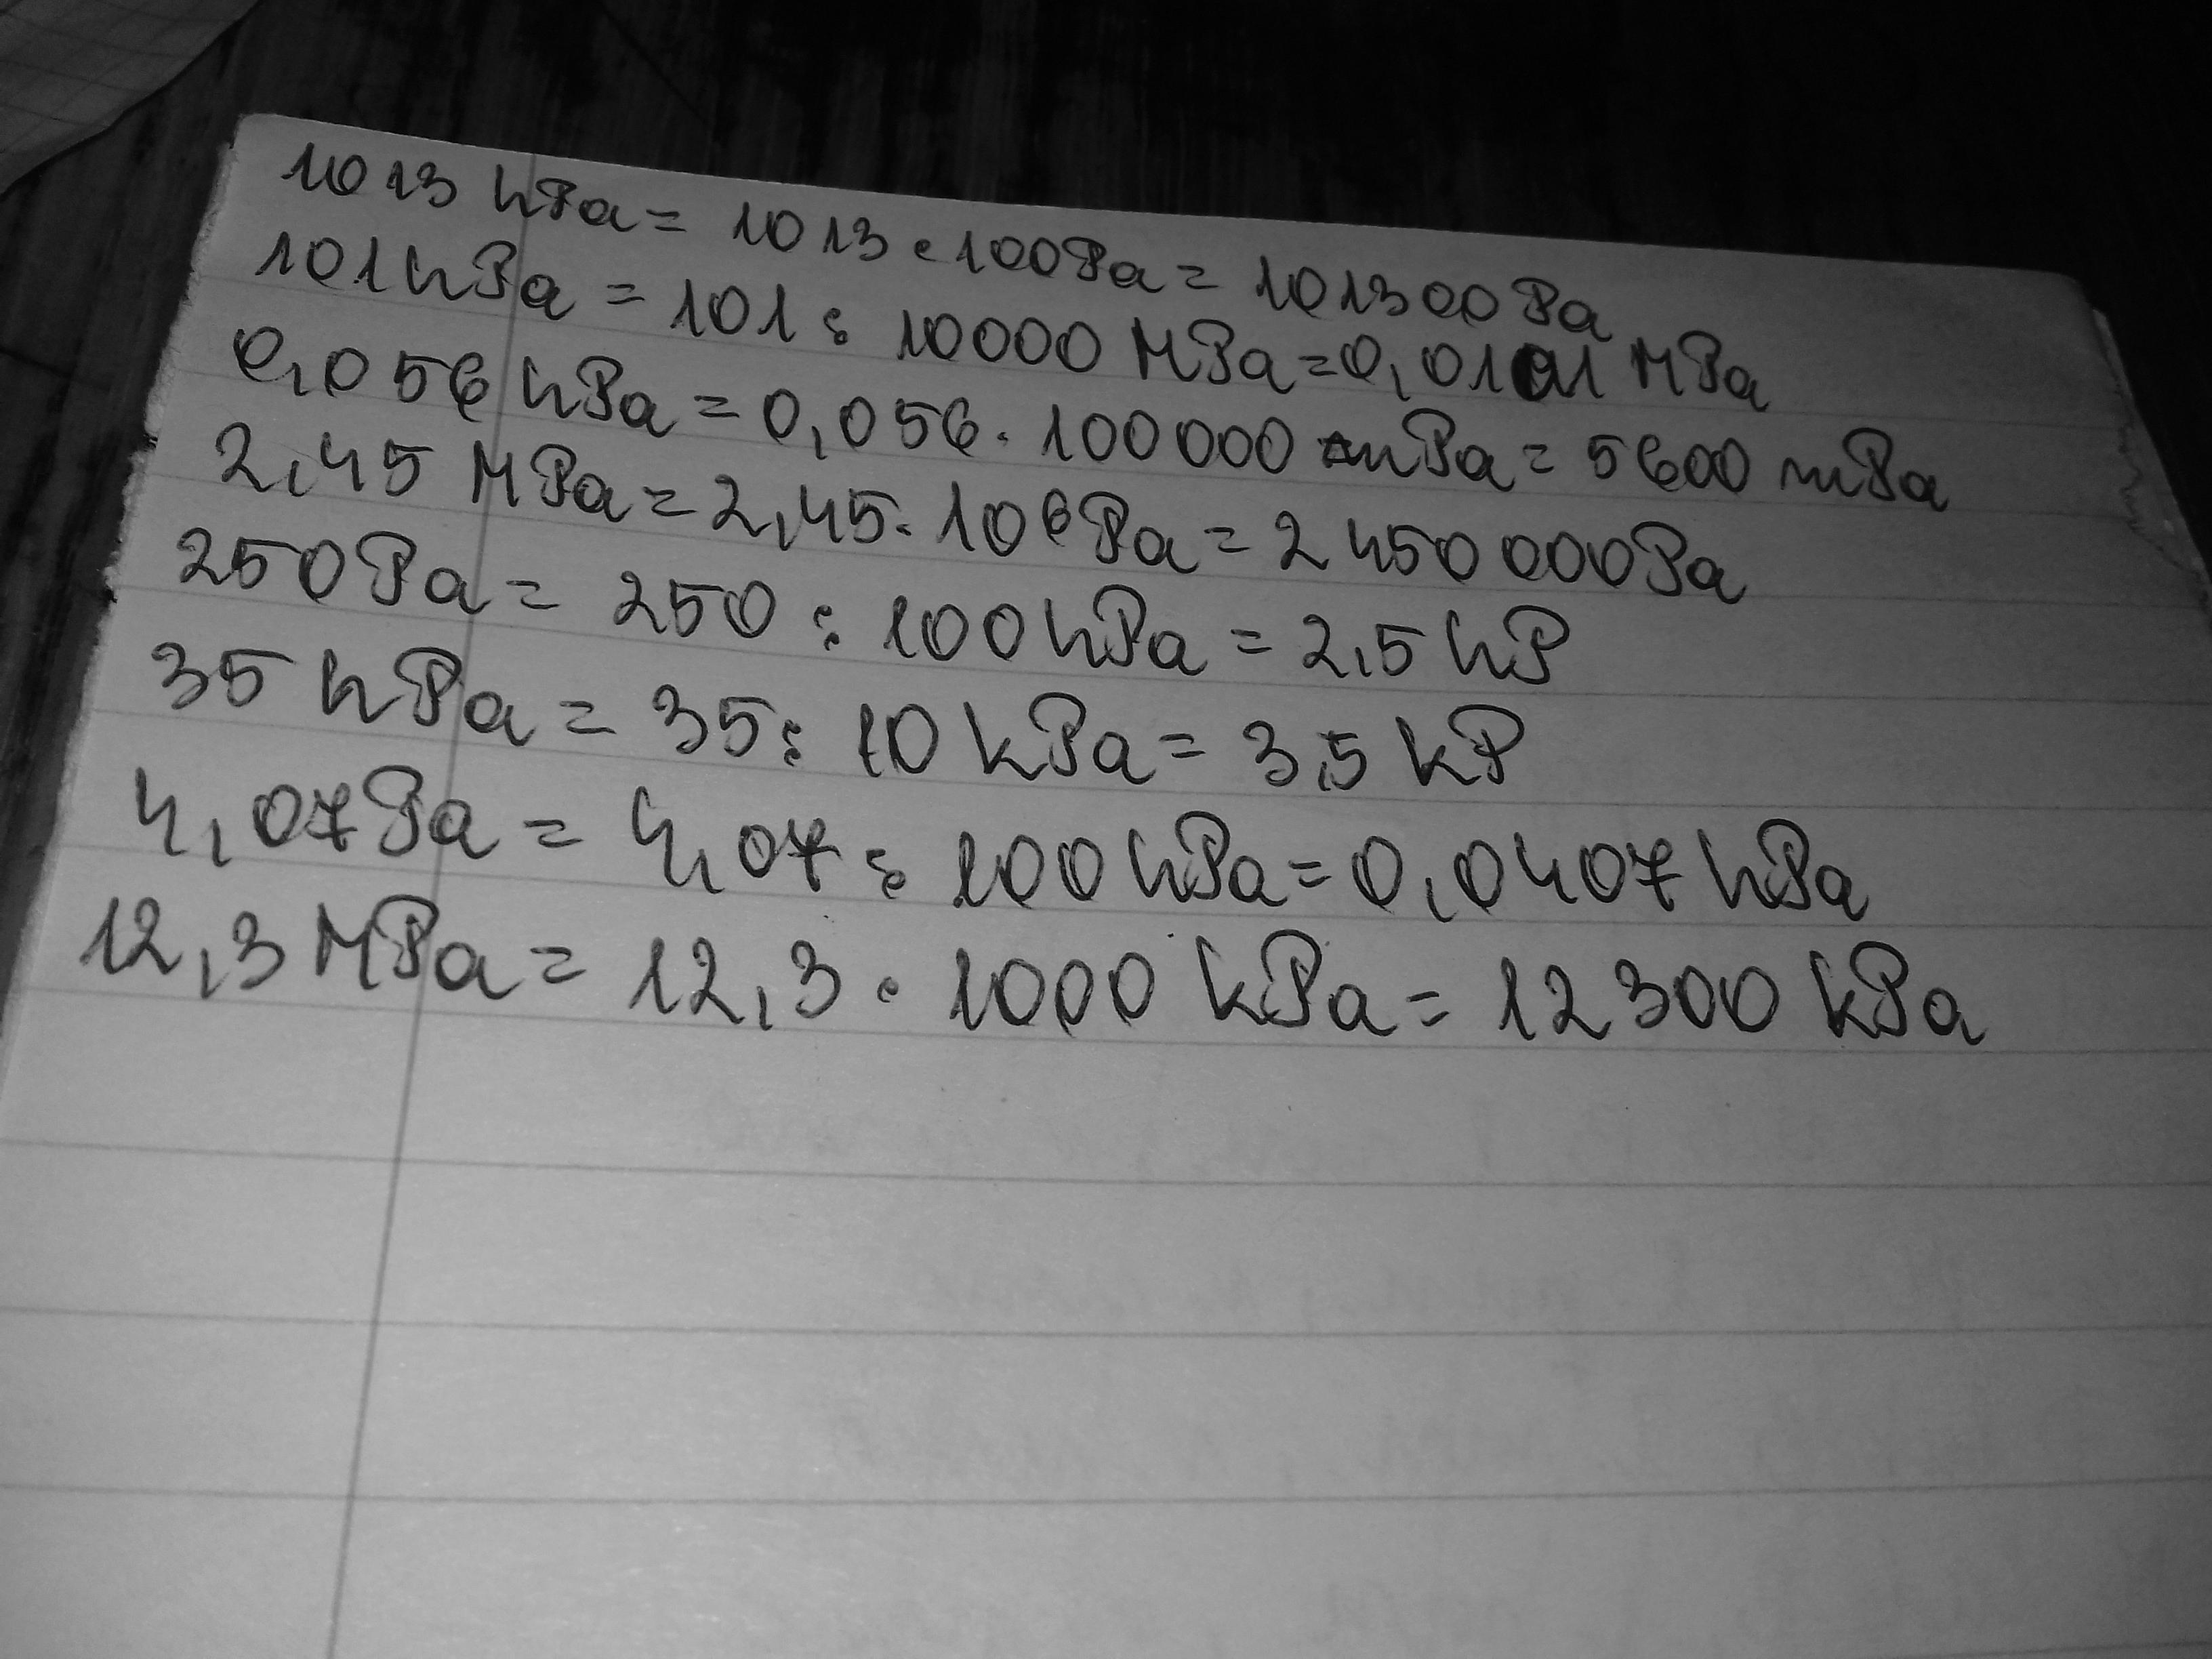 1013 hPa = 1013 · 100Pa = 101300 Pa
101 hPa = 101 : 10000 MPa = 0,0101 MPa
0,056 hPa = 0,056 · 100 000 mPa = 5600 mPa
2,45 MPa = 2,45 · 10⁶ Pa = 2 450 000Pa
250 Pa = 250 : 100 hPa = 2,5 hP
35 hPa = 35 : 10 kPa = 3,5 kP
4,07 Pa = 4,07 : 100 hPa = 0,0407 hPa
12,3 MPa = 12,3 · 1000 kPa = 12 300 kPa